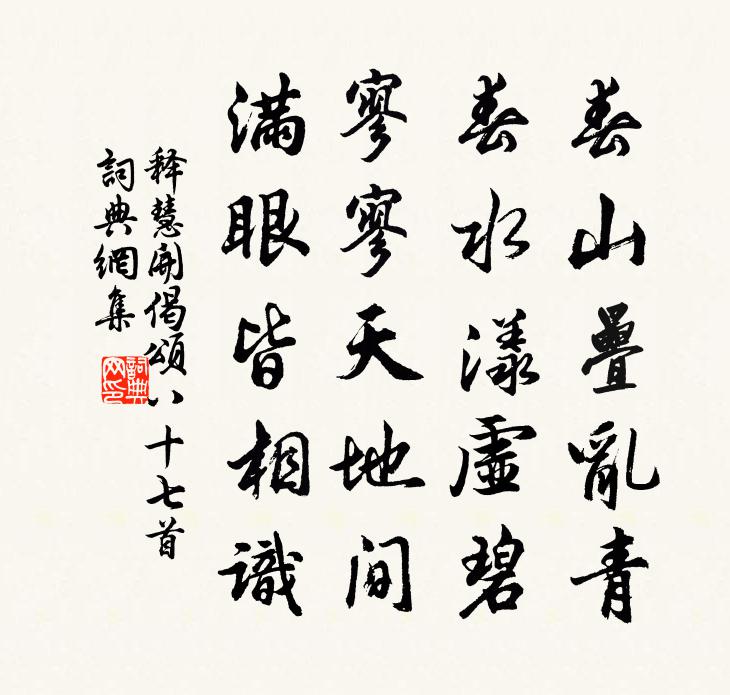 春山疊亂青
春水漾虛碧
寥寥天地間
滿眼皆相識
释慧開偈頌八十七首
詞典網集
詞典網印